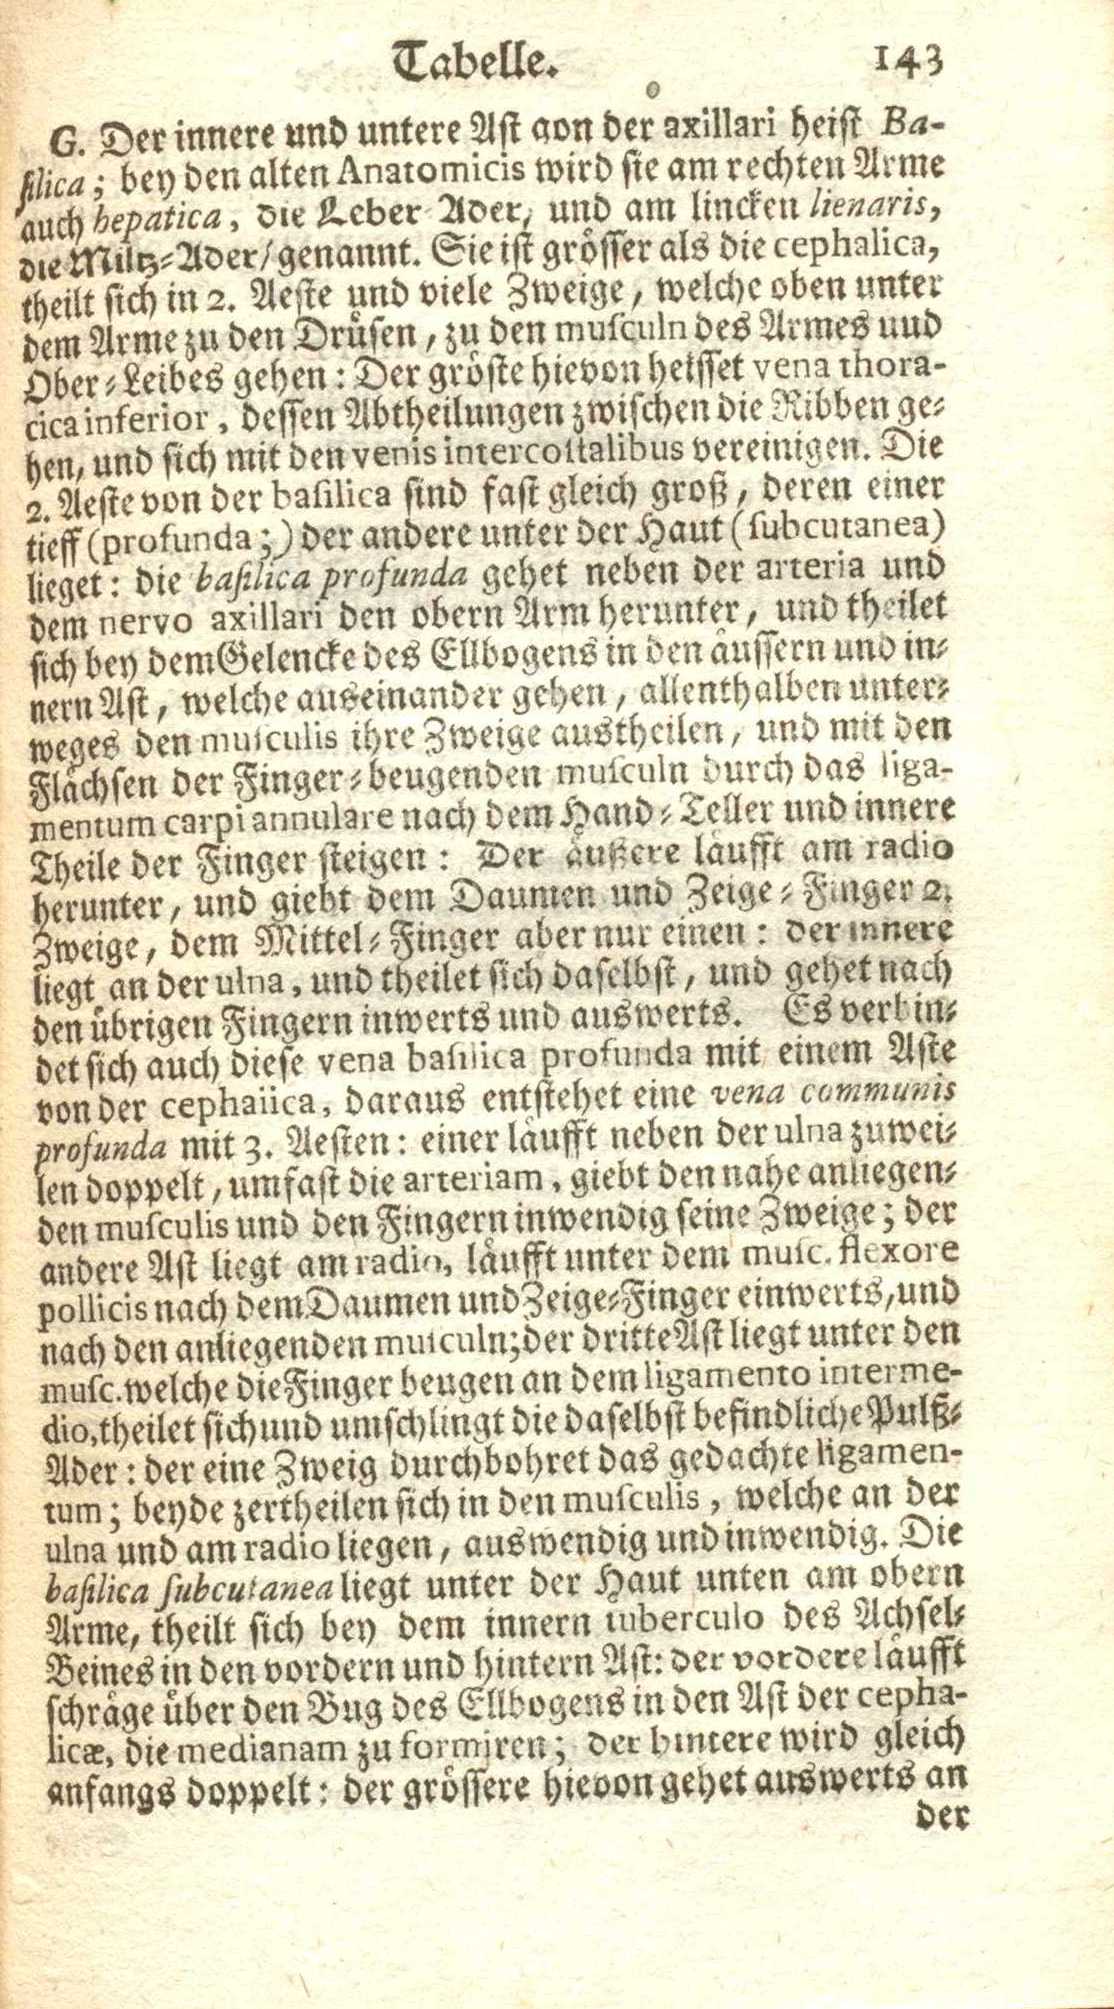 Tabelle. 143
G. Der innere und untere Ast aon der axillari heist Ba-
silica; bey den alten Anatomicis wird sie am rechten Arme
auch hepatica, die Leber-Ader, und am lincken lienaris,
die Miltz-Ader/ genannt. Sie ist grösser als die cephalica,
theilt sich in 2. Aeste und viele Zweige, welche oben unter
dem Arme zu den Drüsen, zu den musculn des Armes und
Ober-Leibes gehen: Der gröste hievon heisset vena thora-
cica inferior, dessen Abtheilungen zwischen die Ribben ge-
hen, und sich mit den venis intercostalibus vereinigen. Die
2. Aeste von der basilica sind fast gleich groß, deren einer
tieff (profunda;) der andere unter der Haut (subcutanea)
lieget: die basilica profunda gehet neben der arteria und
dem nervo axillari den obern Arm herunter, und theilet
sich bey dem Gelencke des Ellbogens in den äussern und in-
nern Ast, welche auseinander gehen, allenthalben unter-
weges den musculis ihre Zweige austheilen, und mit den
Flächsen der Finger-beugenden musculn durch das liga-
mentum carpi annulare nach dem Hand-Teller und innere
Theile der Finger steigen: Der äußere läufft am radio
herunter, und giebt dem Daumen und Zeige-Finger 2.
Zweige, dem Mittel-Finger aber nur einen: der innere
liegt an der ulna, und theilet sich daselbst, und gehet nach
den übrigen Fingern inwerts und auswerts. Es verbin-
det sich auch diese vena basilica profunda mit einem Aste
von der cephalica, daraus entstehet eine vena communis
profunda mit 3. Aesten: einer läufft neben der ulna zuwei-
len doppelt, umfast die arteriam, giebt den nahe anliegen-
den musculis und den Fingern inwendig seine Zweige; der
andere Ast liegt am radio, läufft unter dem musc. flexore
pollicis nach dem Daumen und Zeige-Finger einwerts, und
nach den anliegenden musculn; der dritte Ast liegt unter den
musc. welche die Finger beugen an dem ligamento interme-
dio, theilet sich und umschlingt die daselbst befindliche Pulß-
Ader: der eine Zweig durchbohret das gedachte ligamen-
tum; beyde zertheilen sich in den musculis, welche an der
ulna und am radio liegen, auswendig und inwendig. Die
basilica subcutanea liegt unter der Haut unten am obern
Arme, theilt sich bey dem innern tuberculo des Achsel-
Beines in den vordern und hintern Ast: der vordere läufft
schräge über den Bug des Ellbogens in den Ast der cepha-
licæ, die medianam zu formiren; der hintere wird gleich
anfangs doppelt: der grössere hievon gehet auswerts an
der